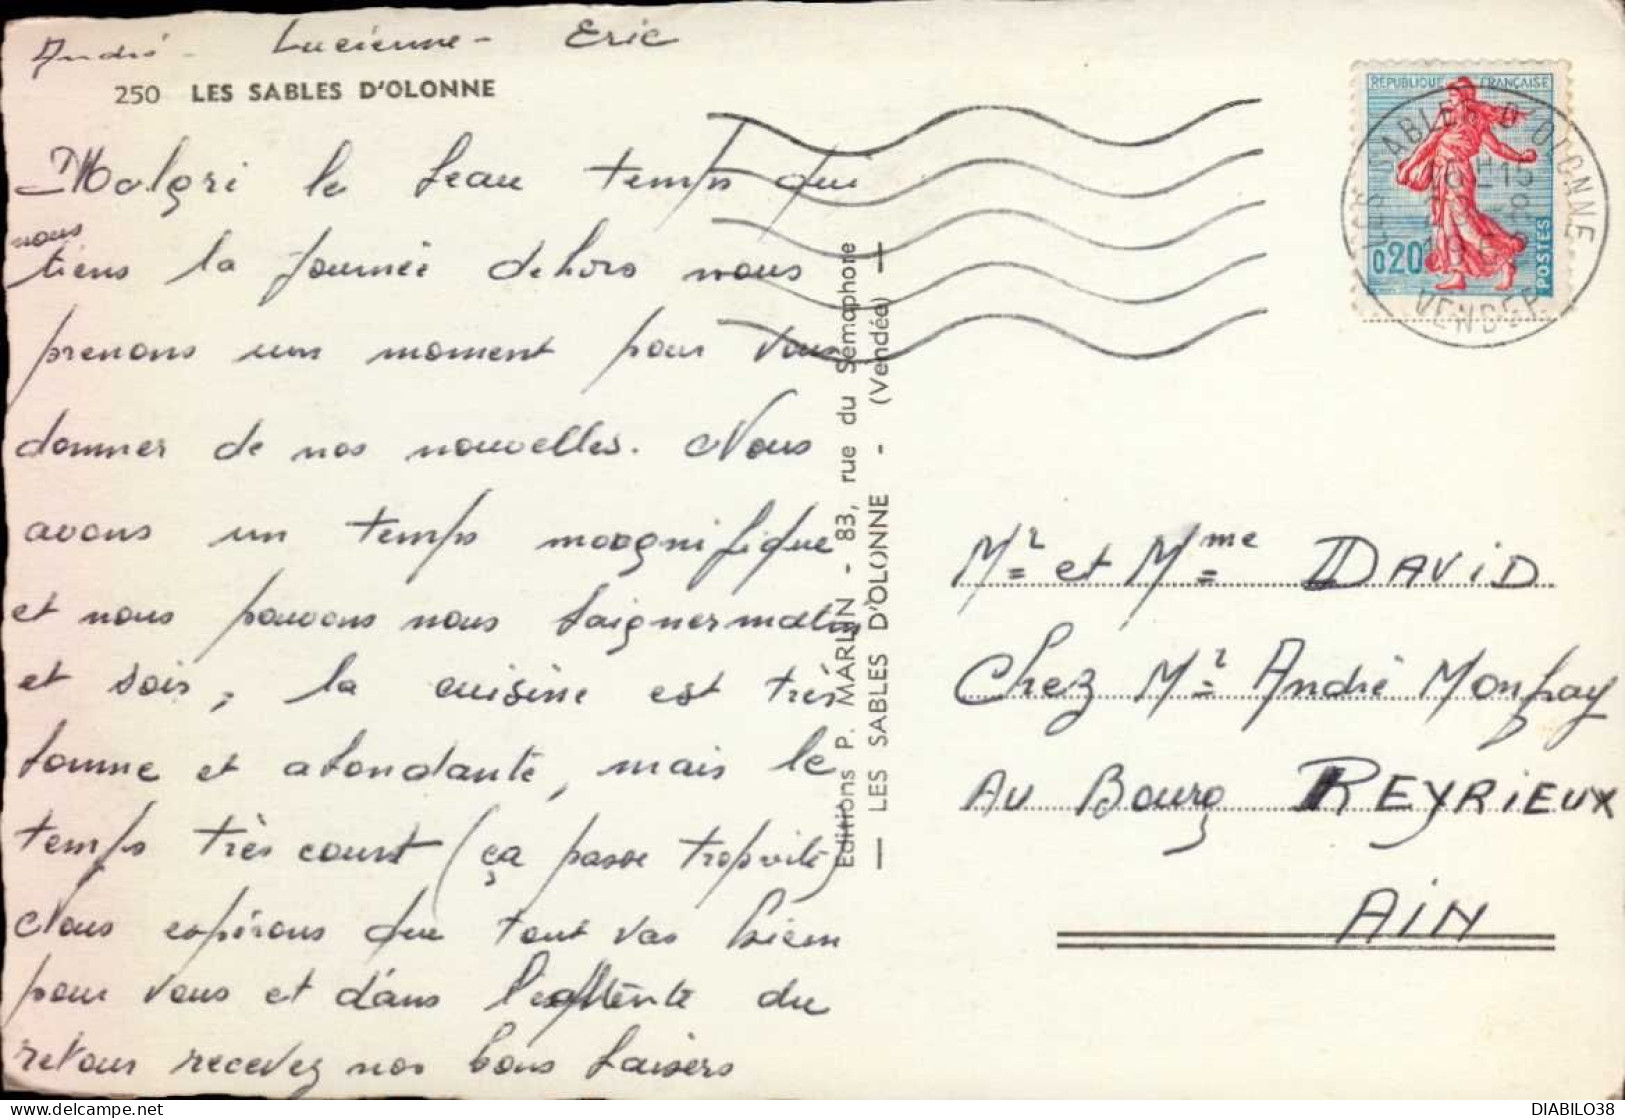 André - Lucienne - Eric
250 LES SABLES D'OLONNE
Malgri le beau temps qui
nous
tiens la journée dehors nous
prenons un moment pour vous
donner de nos nouvelles. Nous
avons un temps magnifique
et nous pouvons nous baigner matin
et soir, la cuisine est très
bonne et abondante, mais le
temps très court (ça passe trop vite)
Nous espérons que tout vas bien
pour vous et dans l'attente du
retour recevez nos bons baisers
Editions P. MARLIN - 83, rue du Sémaphore
— LES SABLES D'OLONNE - (Vendée) —
REPUBLIQUE FRANÇAISE
0,20
POSTES
LES SABLES D'OLONNE
VENDEE
Mr et Mme DAVID
Chez Mr André Monfray
AU Bourg REYRIEUX
AIN
DIABILO38